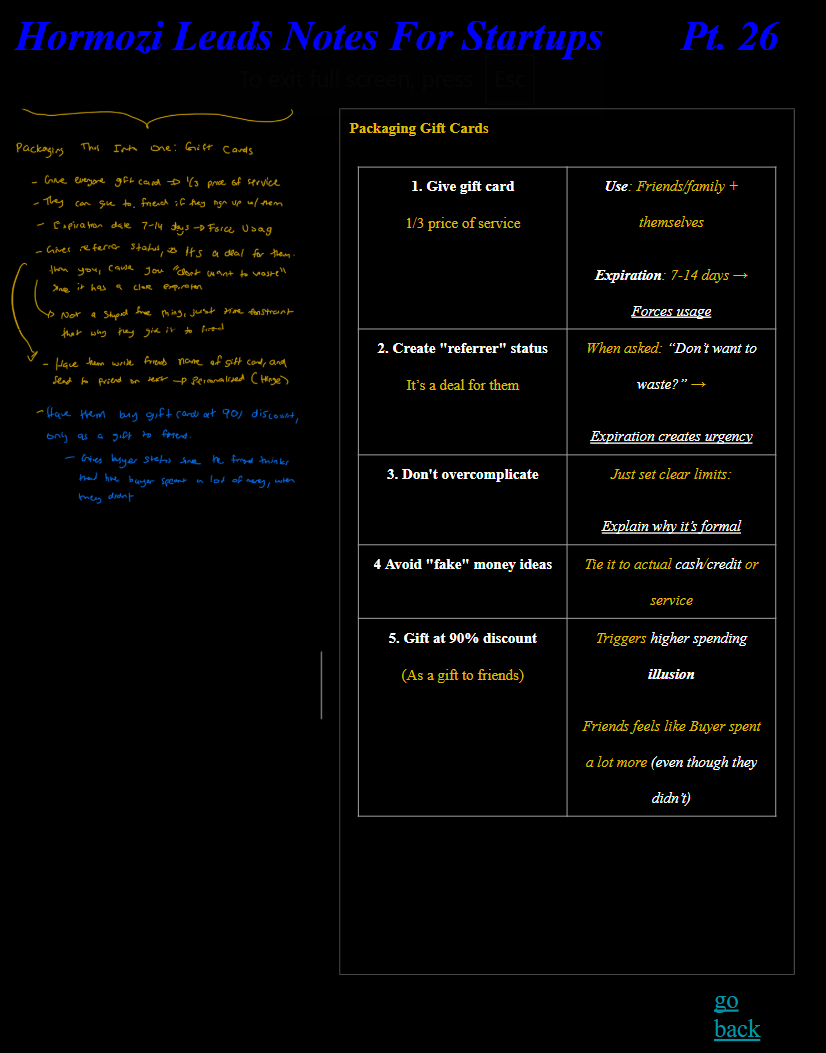 Hormozi Leads Notes For Startups Pt. 26
To exit full screen, press Esc
Packaging This Into One: Gift Cards
- Give everyone gift card → 1/3 price of service
- They can give to friend if they sign up w/ them
- Expiration date 7-14 days → Force Usag
- Gives referror status, → It's a deal for them.
then you, cause you "dont want to waste"
Sine it has a close expiration
→ Not a stupid free thing, just time constraint
that why they give it to friend
- Have them write friends name of gift card, and
Send to friend on text → Personalized (Hinge)
- Have them buy gift cards at 90% discount,
only as a gift to friend.
- Gives buyer status sine the friend thinks
that the buyer spent a lot of money, when
they didnt
Packaging Gift Cards
1. Give gift card
1/3 price of service
Use: Friends/family +
themselves
Expiration: 7-14 days →
Forces usage
2. Create "referrer" status
It's a deal for them
When asked: “Don't want to
waste?” →
Expiration creates urgency
3. Don't overcomplicate
Just set clear limits:
Explain why it's formal
4 Avoid "fake" money ideas
Tie it to actual cash/credit or
service
5. Gift at 90% discount
(As a gift to friends)
Triggers higher spending
illusion
Friends feels like Buyer spent
a lot more (even though they
didn't)
go
back